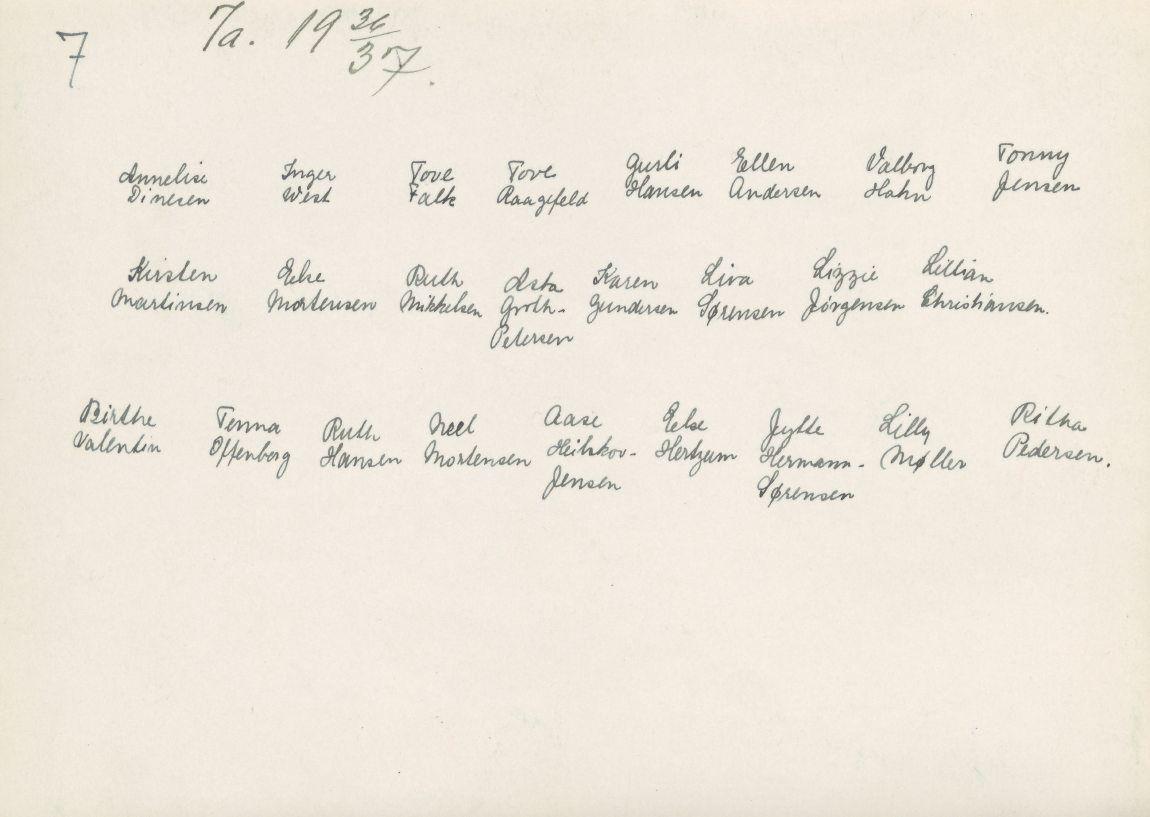 7
7a. 19 36/37.
Annelise Inger Tove Tove Gurli Ellen Valborg Tonny
Dinesen West Falk Raagefeld Hansen Andersen Hahn Jensen
Kirsten Else Ruth Asta Karen Liva Lizzie Lillian
Martinsen Mortensen Mikkelsen Groth- Gundersen Sørensen Jörgensen Christiansen.
Petersen
Birthe Tenna Ruth Neel Aase Else Jytte Lilly Ritha
Valentin Offenberg Hansen Mortensen Heilskov- Hertzum Hermann- Møller Pedersen.
Jensen Sørensen